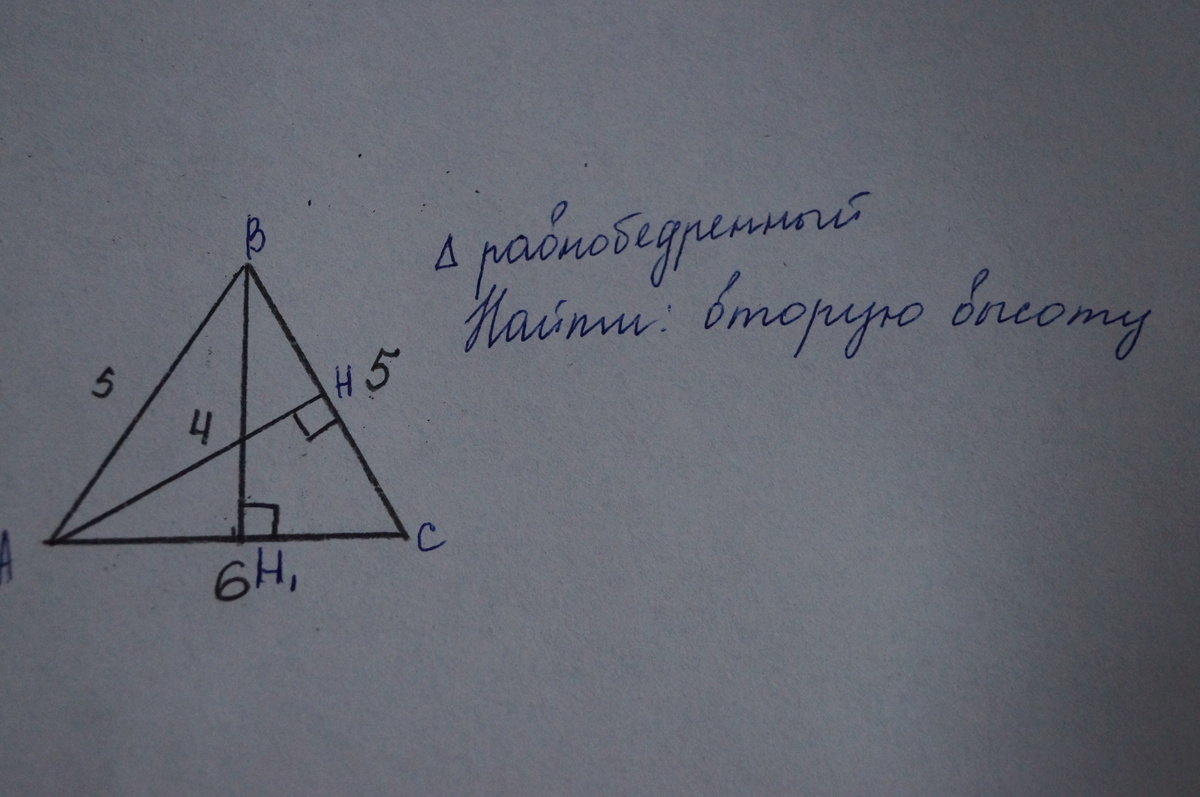 B
Δ равнобедренный
Найти: вторую высоту
5
H 5
4
A
C
6 H₁